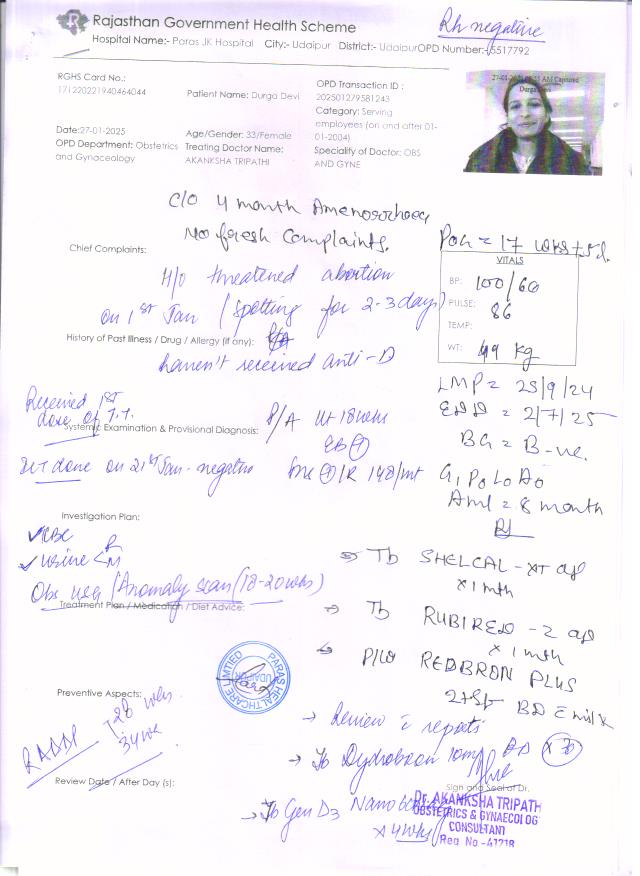 Rajasthan Government Health Scheme
Rh negative
Hospital Name:- Paras JK Hospital City:- Udaipur District:- Udaipur OPD Number:- 5517792
RGHS Card No.:
171220221940464044
Patient Name: Durga Devi
OPD Transaction ID :
202501279581243
Category: Serving
employees (on and after 01-
01-2004)
27-01-2025 AM Captured
Durga Devi
Date:27-01-2025
OPD Department: Obstetrics
and Gynaceology
Age/Gender: 33/Female
Treating Doctor Name:
AKANKSHA TRIPATHI
Speciality of Doctor: OBS
AND GYNE
C/O 4 month Amenorrhoea
No fresh Complaints.
POG = 17 wks + 5d.
Chief Complaints:
H/O threatened abortion
on 1st Jan (spotting for 2-3 days)
VITALS
BP: 100/60
PULSE: 86
TEMP:
WT: 49 kg
History of Past Illness / Drug / Allergy (if any):
haven't received anti-D
LMP = 25/9/24
EDD = 2/7/25
BG = B-ve.
Received 1st
dose of T.T.
Systemic Examination & Provisional Diagnosis:
P/A Ut 18 wks
EB (+)
ICT done on 21st Jan - negative
FHR 148/mt
G1 P0 L0 A0
Aml = 8 month
Investigation Plan:
CBC
Urine < R
M
Obs usg / Anomaly scan (18-20 wks)
Treatment Plan / Medication / Diet Advice:
Rx
Tb SHELCAL - XT
x 1 mth
Tb RUBIRED - Z
x 1 mth
REDBRON PLUS
BD
PARAS HEALTHCARE LIMITED
UDAIPUR
Preventive Aspects:
RAADP
28 wks
34 wk
→ Review c reports
→ Tb Dydrobron 10mg BD
Review Date / After Day (s):
Sign and Seal of Dr.
→ Tb Gen D3 Nano
x 4 wks
Dr. AKANKSHA TRIPATH
OBSTETRICS & GYNAECOLOG
CONSULTANT
Reg. No -41218